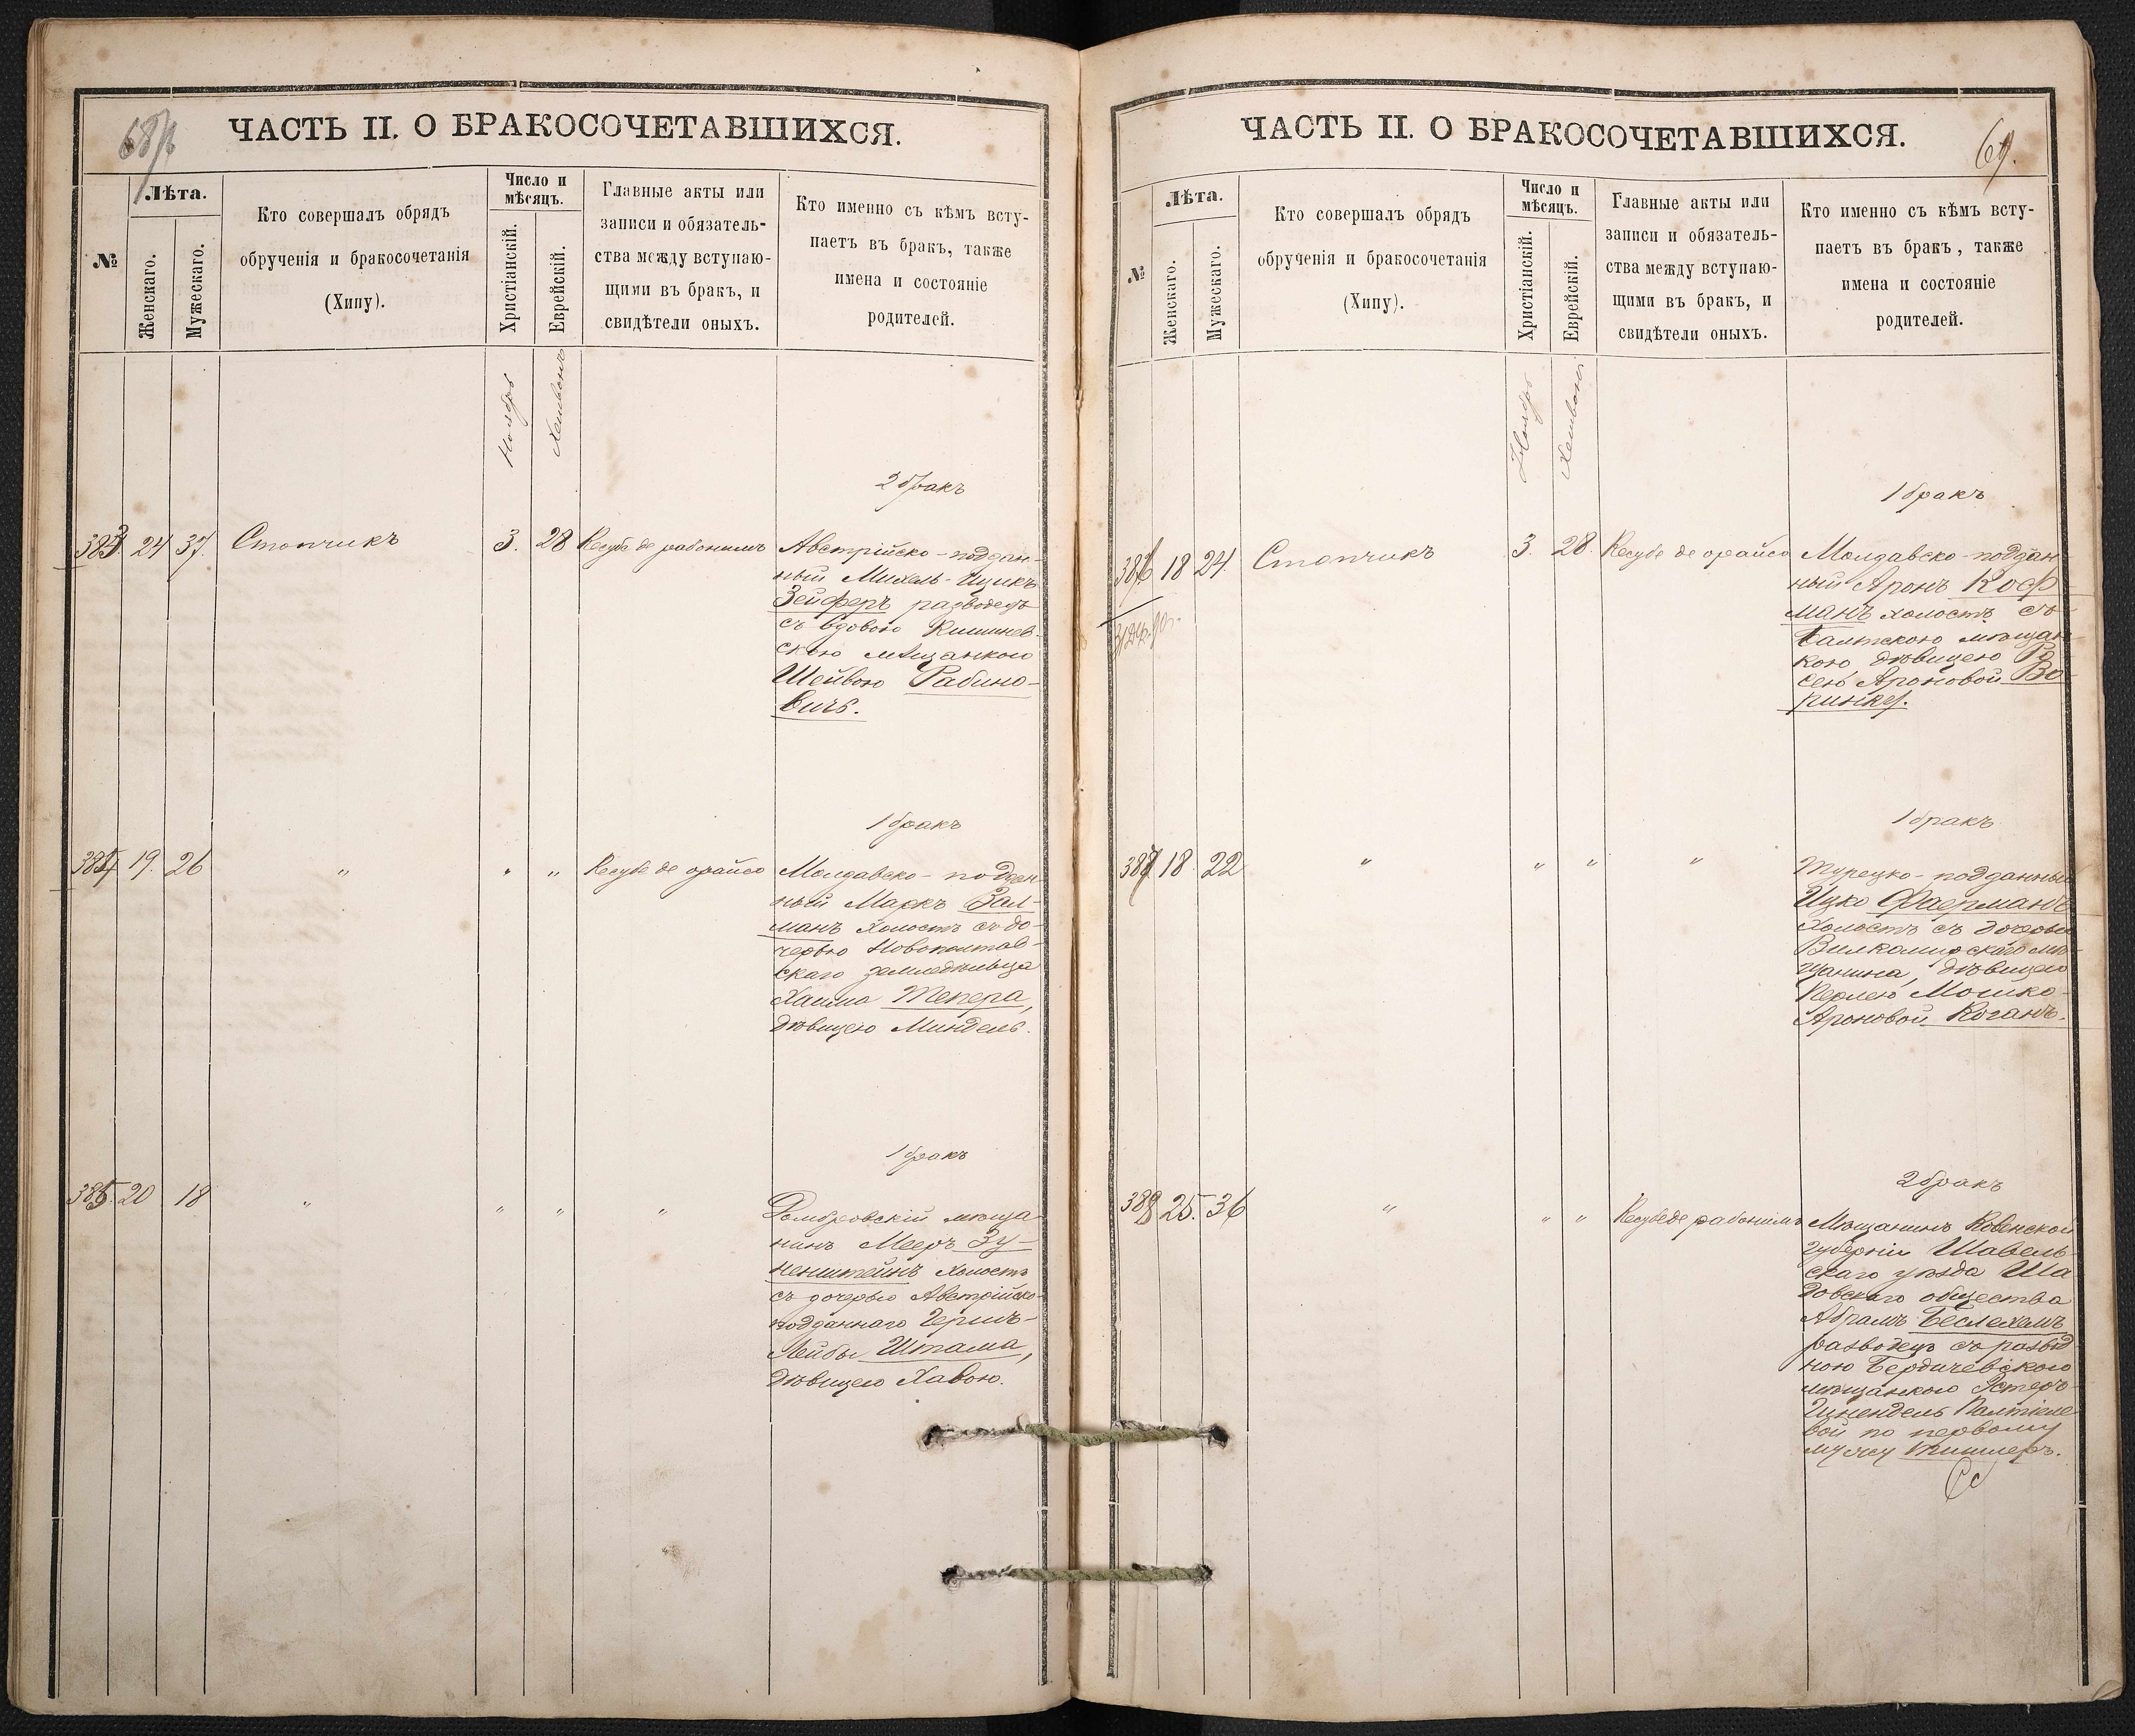 ЧАСТЬ II. О БРАКОСОЧЕТАВШИХСЯ.
№
Лѣта.
Женскаго.
Мужескаго.
Кто совершалъ обрядъ
обрученія и бракосочетанія
(Хипу).
Число и
мѣсяцъ.
Христіанскій.
Еврейскій.
Главные акты или
записи и обязатель-
ства между вступаю-
щими въ бракъ, и
свидѣтели оныхъ.
Кто именно съ кѣмъ всту-
паетъ въ бракъ, также
имена и состояніе
родителей.
Ноябрь
Хешвонъ
2 бракъ
383. 24 37. Стопчикъ 3. 28 Кесубе де рабонимъ Австрійско-поддан-
ный Михель-Ицикъ
Зейферъ разводецъ
съ вдовою Кишинев-
скою мѣщанкою
Шейвою Рабино-
вичъ.
1 бракъ
384 19. 26 " " " Кесубе де орайсо Молдавско-поддан-
ный Маркъ Зал-
манъ холостъ съ до-
черью Новополтав-
скаго земледѣльца
Хаима Тепера,
дѣвицею Миндель.
1 бракъ
385. 20 18 " " " " Домбровскій мѣща-
нинъ Мееръ Зу-
ненштейнъ холостъ
съ дочерью Австрійско-
подданнаго Гершъ-
Лейбы Штама,
дѣвицею Хавою.
ЧАСТЬ II. О БРАКОСОЧЕТАВШИХСЯ.
69.
№
Лѣта.
Женскаго.
Мужескаго.
Кто совершалъ обрядъ
обрученія и бракосочетанія
(Хипу).
Число и
мѣсяцъ.
Христіанскій.
Еврейскій.
Главные акты или
записи и обязатель-
ства между вступаю-
щими въ бракъ, и
свидѣтели оныхъ.
Кто именно съ кѣмъ всту-
паетъ въ бракъ, также
имена и состояніе
родителей.
Ноябрь
Хешвонъ
1 бракъ
386 18 24. Стопчикъ 3. 28. Кесубе де орайсо Молдавско-поддан-
ный Аронъ Коф-
манъ холостъ съ
Балтскою мѣщан-
кою дѣвицею
Ароновой Во-
1 бракъ
387 18. 22 " " " " Турецко-подданный
Ицко Фаерманъ
холостъ съ дочерью
Вилкомирскаго мѣ-
щанина, дѣвицею
Перлею Мошко-
Ароновой Коганъ.
2 бракъ
388 25. 36 " " " Кесубе де рабонимъ Мѣщанинъ Ковенской
губерніи Шавель-
скаго уѣзда Ша-
довскаго общества
Абрамъ Беслехемъ
разводецъ съ развод-
ною Бердичевскою
мѣщанкою Эстеръ-
вой по первому
мужу Тишлеръ.